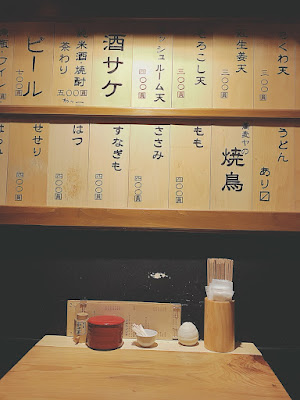 ちくわ天
生姜天
三〇〇圓
ろこし天
三〇〇圓
ッシュルーム天
四〇〇圓
酒サケ
米酒焼酎
茶わり
五〇〇圓
ビール
七〇〇圓
ワイン
うどん
あり〼
蕎麦ヤの
焼鳥
もも
四〇〇圓
ささみ
四〇〇圓
すなぎも
四〇〇圓
はつ
四〇〇圓
せせり
四〇〇圓